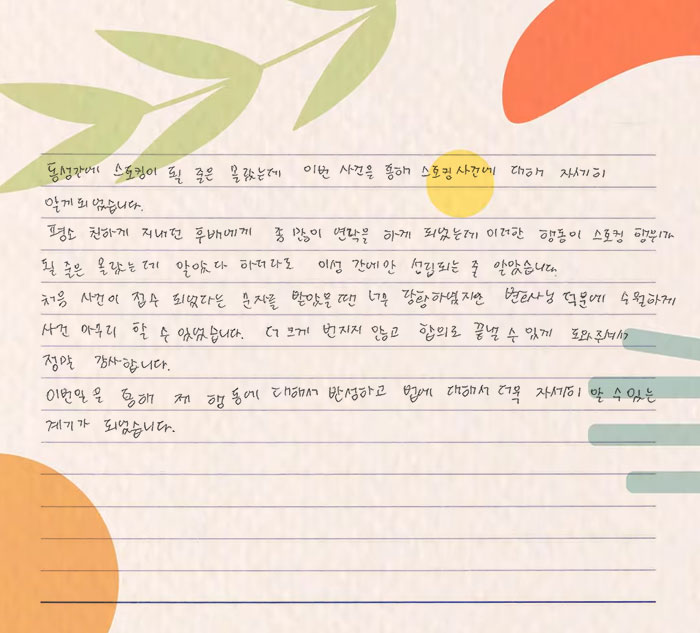 동성간에 스토킹이 될 줄은 몰랐는데 이번 사건을 통해 스토킹사건에 대해 자세히
알게되었습니다.
평소 친하게 지내던 후배에게 좀 많이 연락을 하게 되었는데 이러한 행동이 스토킹 행위가
될 줄은 몰랐는데 알았다 하더라도 이성 간에만 성립되는 줄 알았습니다.
처음 사건이 접수 되었다는 문자를 받았을 땐 너무 당황하였지만 변호사님 덕분에 수월하게
사건 마무리 할 수 있었습니다. 더 크게 번지지 않고 합의로 끝낼 수 있게 도와주셔서
정말 감사합니다.
이번일을 통해 제 행동에 대해서 반성하고 법에 대해서 더욱 자세히 알 수 있는
계기가 되었습니다.